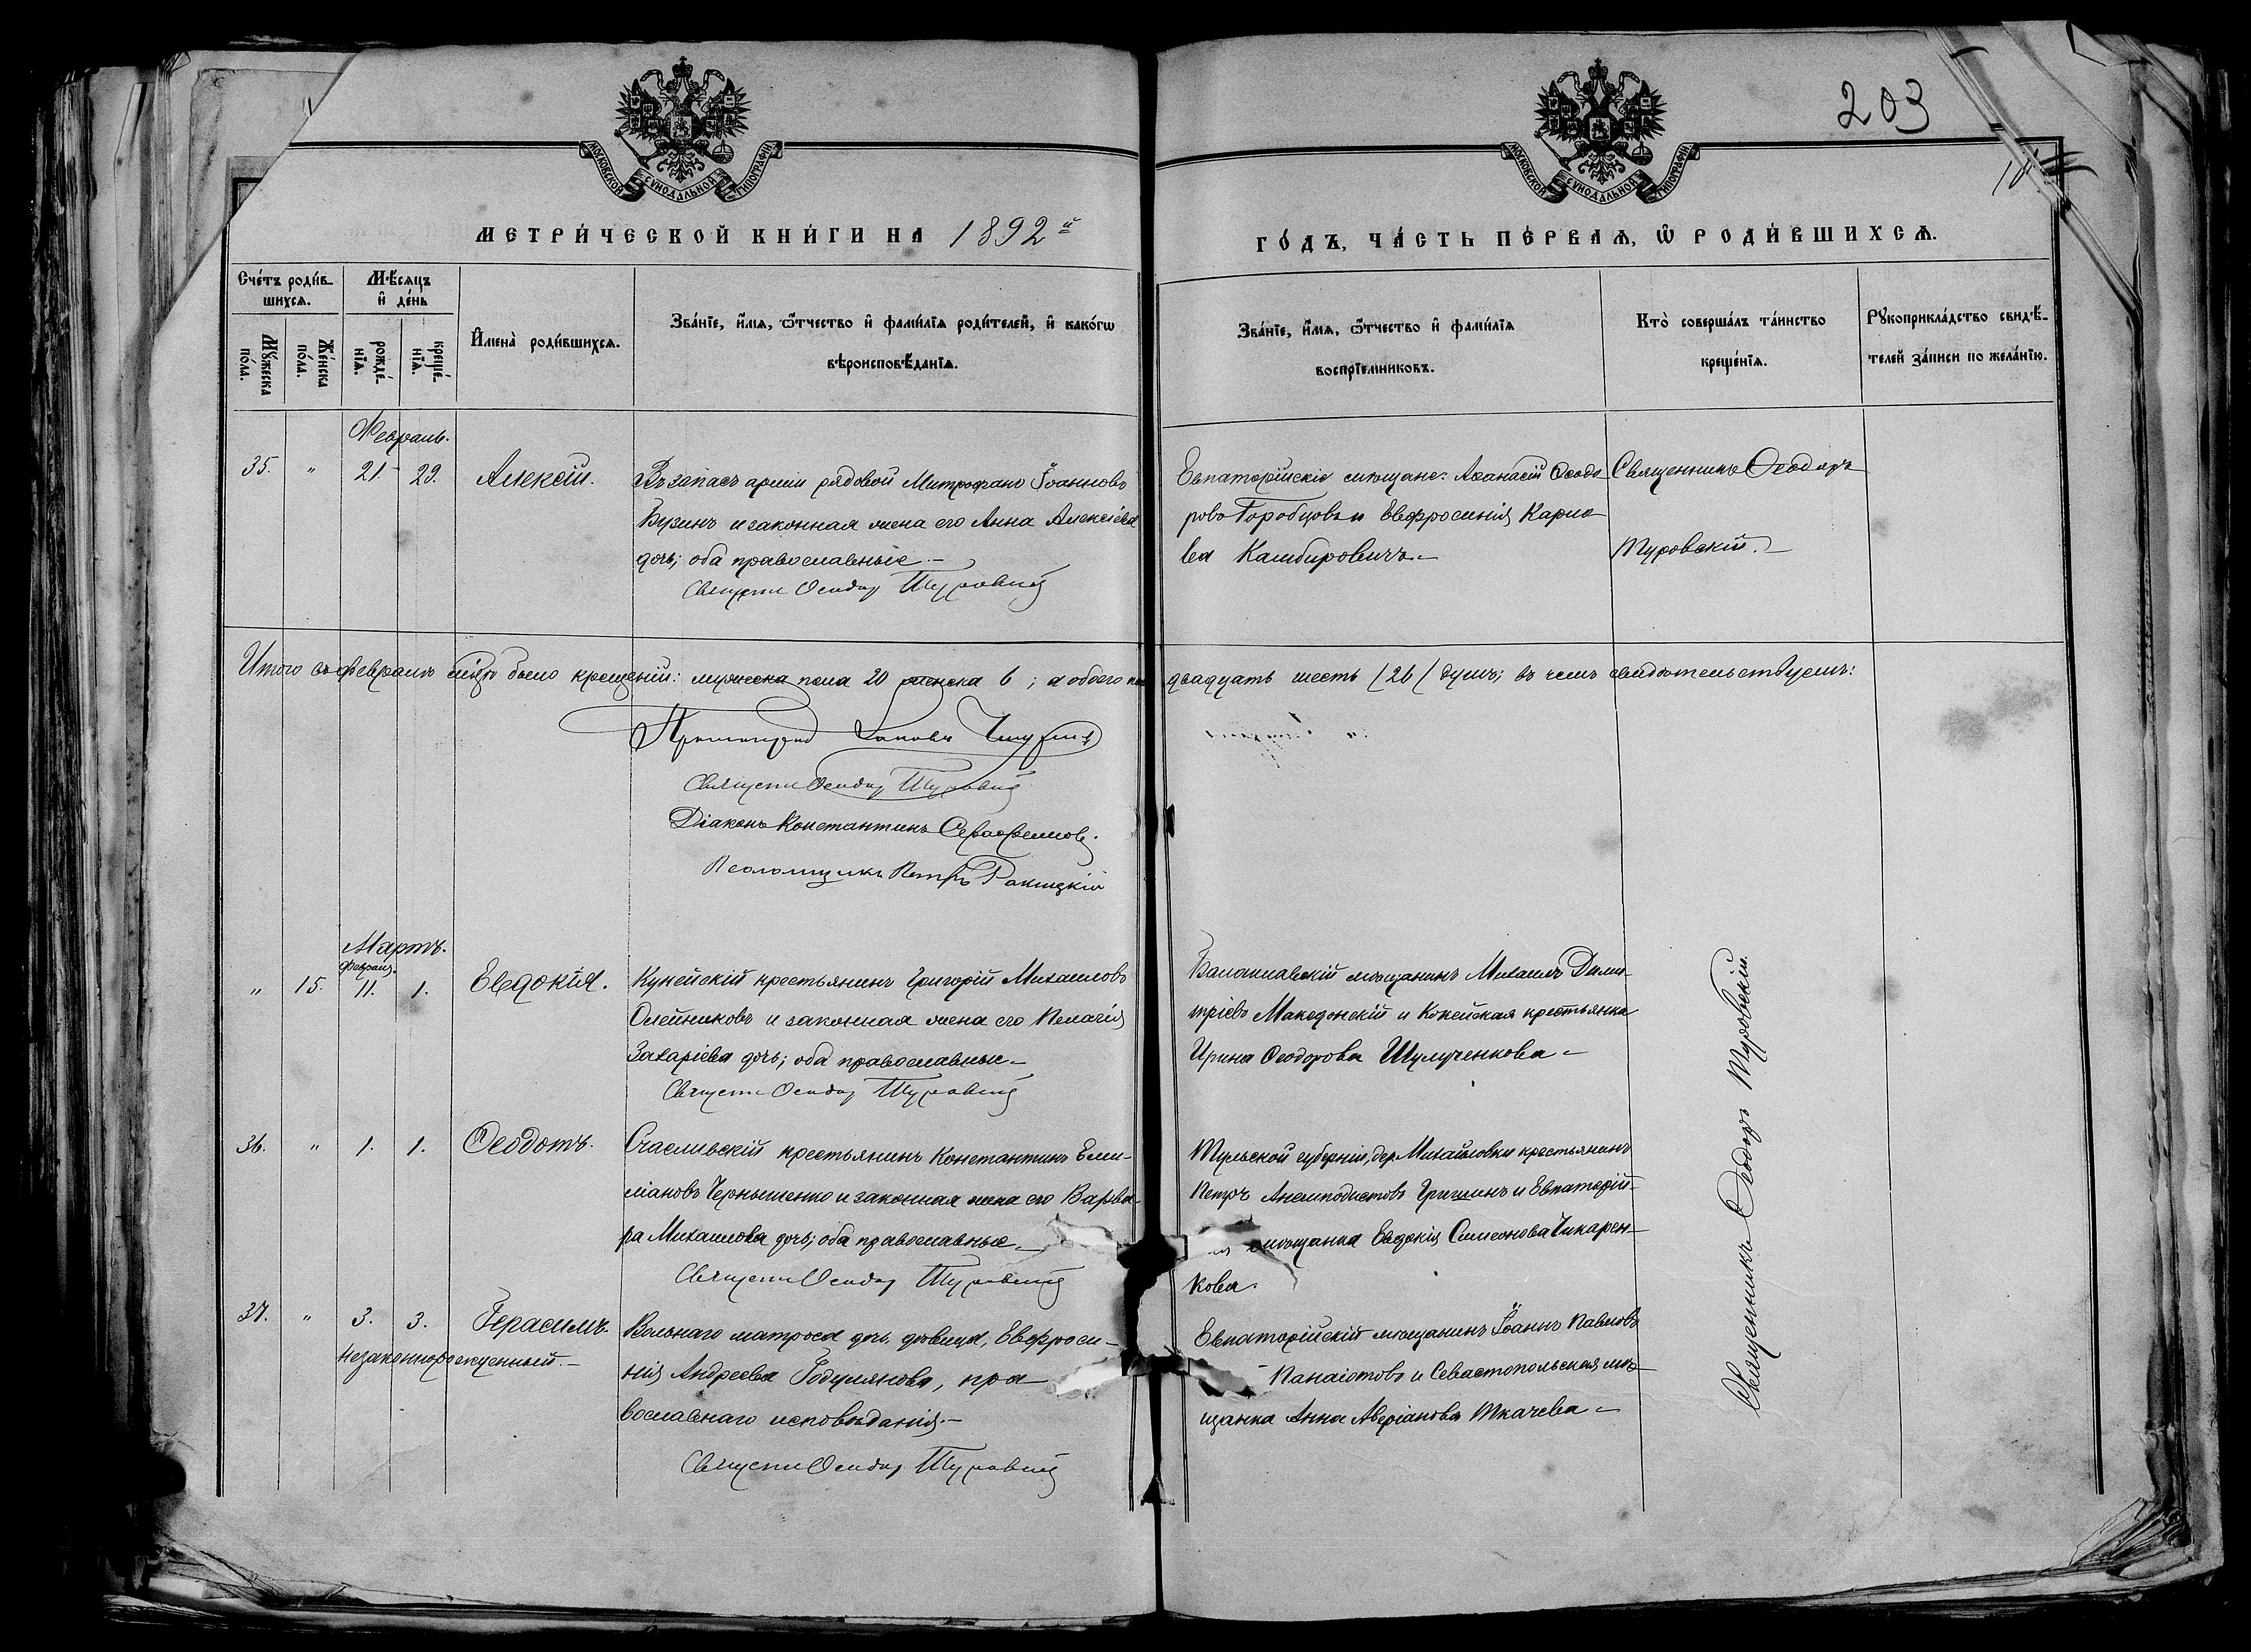 203
МОСКОВСКОЙ СѴНОДАЛЬНОЙ ТИПОГРАФІИ
МОСКОВСКОЙ СѴНОДАЛЬНОЙ ТИПОГРАФІИ
МЕТРИ́ЧЕСКОЙ КНИ́ГИ НА 1892й
ГО́ДЪ, ЧА́СТЬ ПЕ́РВАѦ, Ѡ҆ РОДИ́ВШИХСѦ.
Сче́тъ роди́в-
шихсѧ.
Мꙋ́жеска по́ла.
Же́нска по́ла.
Мѣ́сѧцъ
и҆ де́нь
рожде́-
нїѧ.
креще́-
нїѧ.
И҆мена̀ роди́вшихсѧ.
Зва́нїе, и҆́мѧ, ѻ҆́тчество и҆ фами́лїѧ роди́телей, и҆ како́гѡ
вѣроисповѣ́данїѧ.
Зва́нїе, и҆́мѧ, ѻ҆́тчество и҆ фами́лїѧ
воспрїе́мниковъ.
Кто̀ соверша́лъ та́инство
креще́нїѧ.
Рꙋкоприкла́дство свидѣ́-
телей за́писи по жела́нїю.
Февраль.
35. " 21. 29. Алексій.
Въ запасъ арміи рядовой Митрофанъ Іоанновъ
Бузинъ и законная жена его Анна Алексіева
дочь; оба православные.-
Священ Ѳеодор Туровскій
Евпаторійскіе мѣщане: Аѳанасій Ѳеодо
ровъ Горобцовъ и Евфросинія Карпо
ва Камбировичъ.-
Священникъ Ѳеодоръ
Туровскій.
Итого въ февралѣ мѣсяцѣ было крещеній: мужеска пола 20 женска 6; а обоего пола двадцать шесть /26/ душъ; въ чемъ свидѣтельствуемъ:
Протоіерей Іаковъ
Священ Ѳеодор Туровскій
Діаконъ Константинъ Серафимов.
Псаломщикъ Петръ Ракицкій
Мартъ.
Февраля.
" 15. 11. 1. Евдокія.
Кунейскій крестьянинъ Григорій Михаиловъ
Олейниковъ и законная жена его Пелагія
Захаріева дочь; оба православные.-
Священ Ѳеодор Туровскій
Балаклавскій мѣщанинъ Михаилъ Дими-
тріевъ Македонскій и Кунейская крестьянка
Ирина Ѳеодорова Шулученкова.-
36. " 1. 1. Ѳеодотъ.
Счасливскій крестьянинъ Константинъ Еми-
ліановъ Чернышенко и законная жена его Варва-
ра Михаилова дочь; оба православные.-
Священ Ѳеодор Туровскій
Тульской губерніи, дер. Михайловки крестьянинъ
Петръ Анемподистовъ Гришинъ и Евпаторій-
мѣщанка Евдокія Симеонова Чикарен-
кова.
37. " 3. 3. Герасимъ.
незаконнорожденный.-
Вольнаго матроса дочь дѣвица, Евфроси-
нія Андреева Годулянова, пра-
вославнаго исповѣданія.-
Священ Ѳеодор Туровскій
Евпаторійскій мѣщанинъ Іоаннъ Павловъ
Панаіотовъ и Севастопольская мѣ-
щанка Анна Аверіанова Ткачева.-
Священникъ Ѳеодоръ Туровскій.